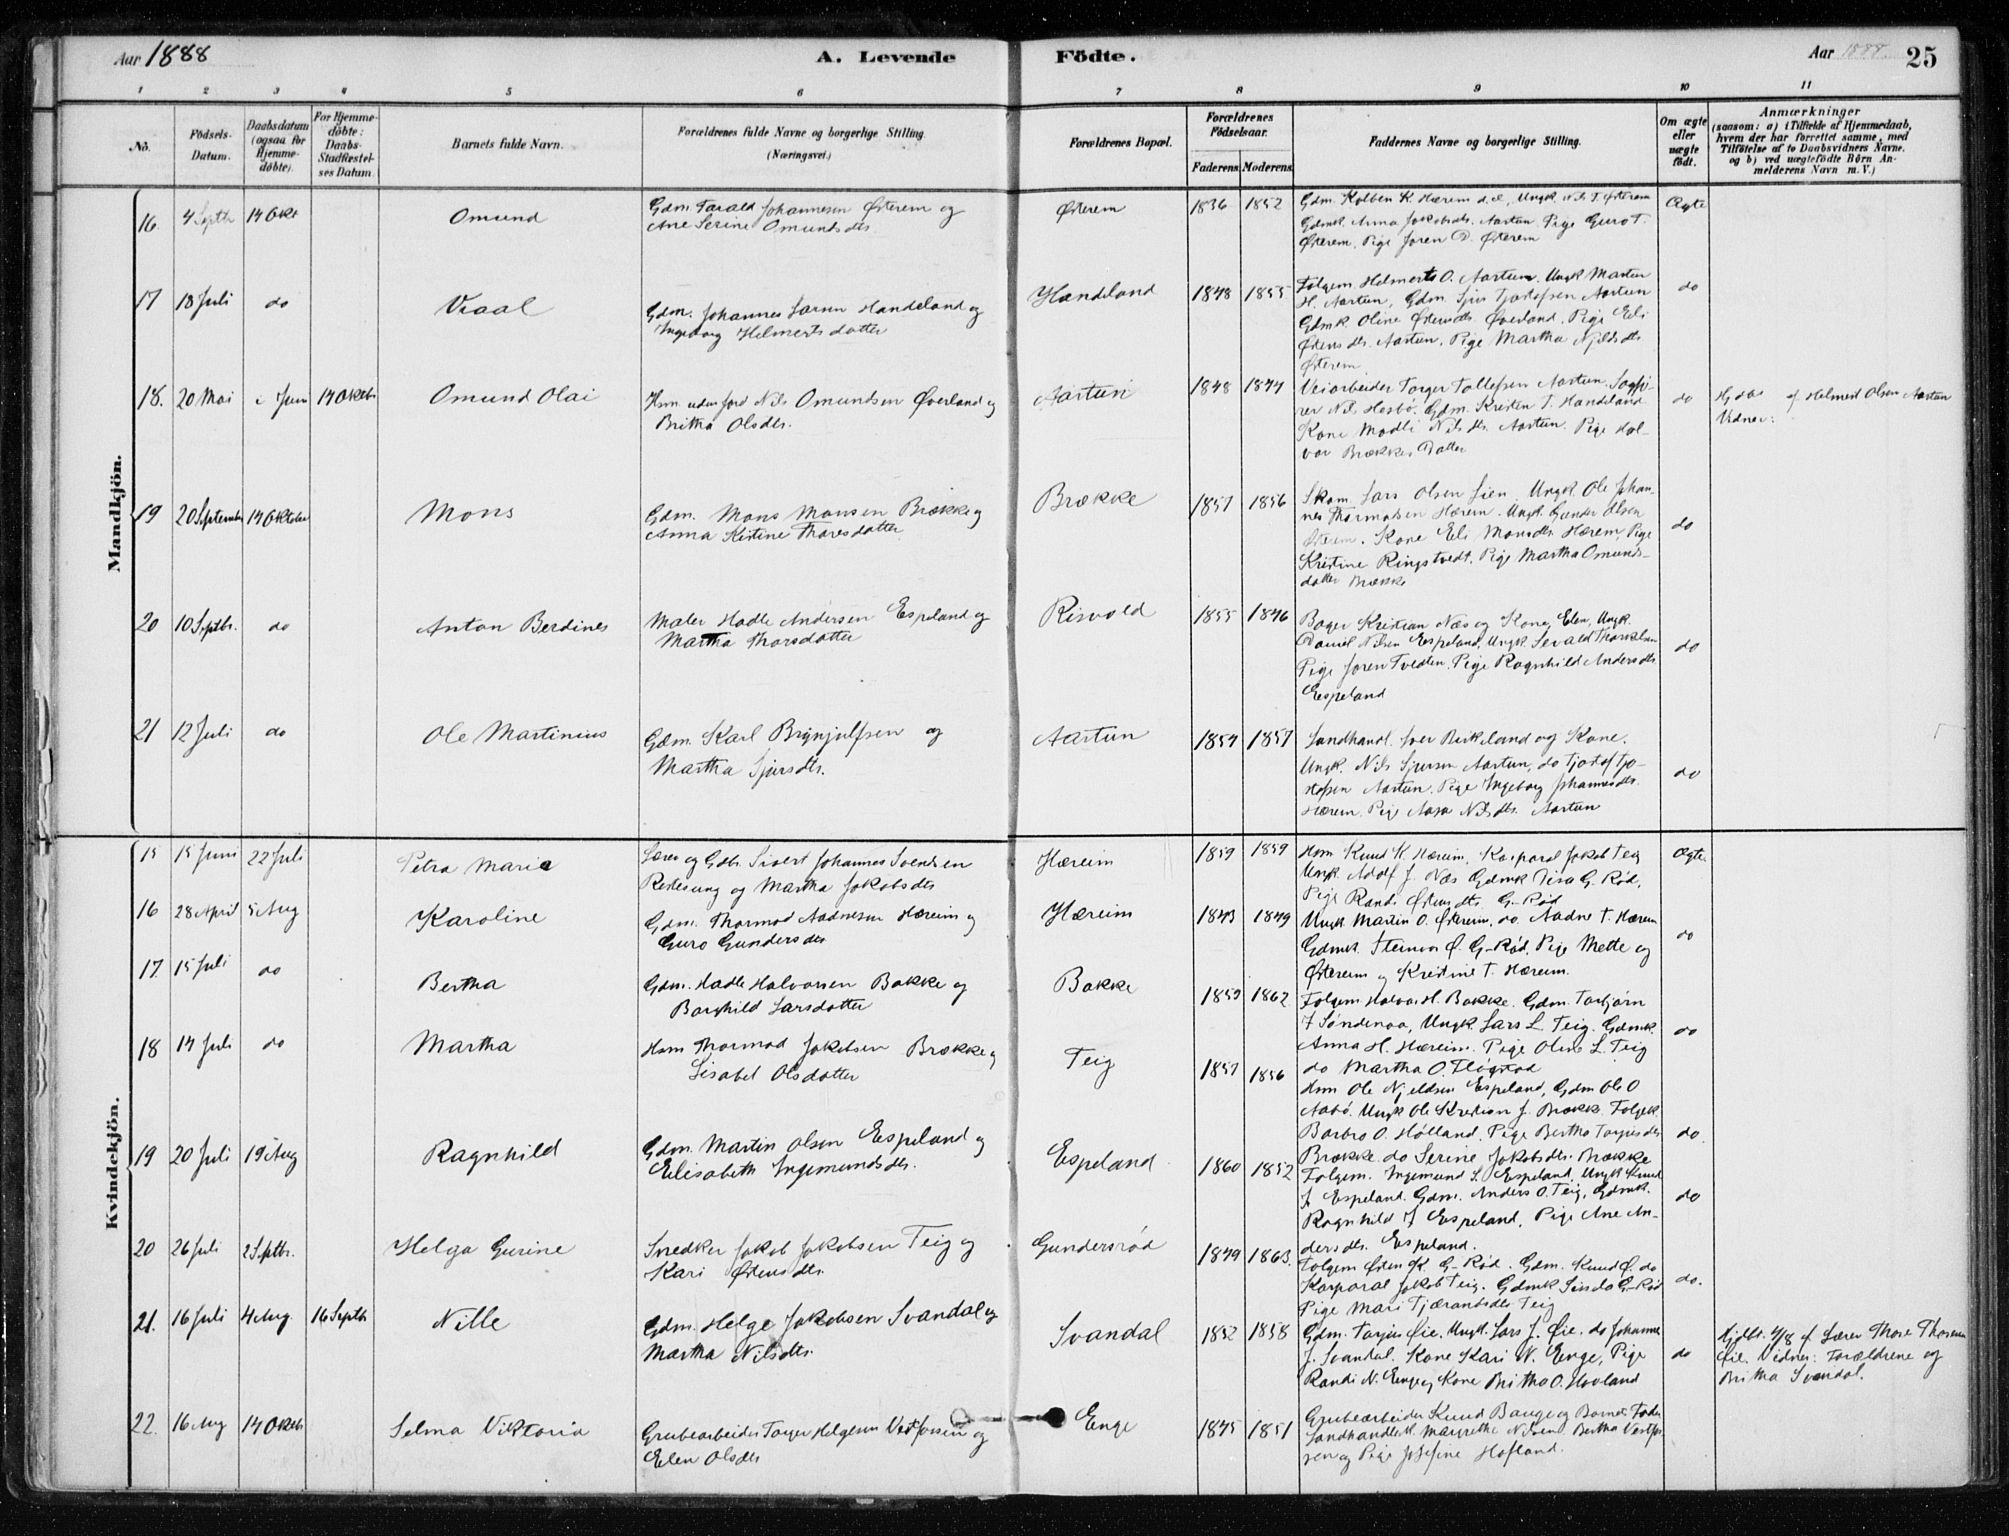 Aar 1888 A. Levende Födte. Aar 1888. 25
1 2 3 4 5 6 7 8 9 10 11
No. Födsels-Datum. Daabsdatum (ogsaa for Hjemme-döbte). For Hjemme-döbte: Daabs-Stadfæstel-ses Datum. Barnets fulde Navn. Forældrenes fulde Navne og borgerlige Stilling. (Næringsvei.) Forældrenes Bopæl. Forældrenes Födselsaar. Faderens. Moderens. Faddernes Navne og borgerlige Stilling. Om ægte eller uægte födt. Anmærkninger (saasom: a) i Tilfælde af Hjemmedaab, hvem der har forrettet samme, med Tilföielse af to Daabsvidners Navne. og b) ved uægtefödte Börn An-melderens Navn m. V.)
Mandkjön.
16. 4 Septbr 14 Okt Omund Gdm. Tarald Johannesen Østerem og Østerem 1836 1852 Gdm. Kolben K. Hærem d.e., Ungk. Nils T. Østerem Ægte
Ane Serine Omundsdtr. Gdmk. Anna Jakobsdtr. Aartun Pige Guro T.
Østerem, Pige Joren D. Østerem
17 18 Juli do Vraal Gdm. Johannes Larsen Handeland og Handeland 1848 1855 Folgem. Helmert O. Aartun. Ungk. Martin do
Ingeborg Helmertsdatter H. Aartun, Gdm. Sjur Tjostofsen Aartun
Gdmk. Oline Østensdtr. Øverland. Pige Eli
Østensdtr. Aartun, Pige Martha Njeldsdtr.
Østerem
18. 20 Mai Juni 14 Oktbr Omund Olai Hsm. uden Jord Nils Omundsen Øverland og Aartun 1848 1844 Veiarbeider Torger Tollefsen Aartun. do Hjdbt af Helmert Olsen Aartun
Britha Olsdtr. Nils Hesbø. Gdm. Kristen T. Handeland Vidner:
Kone Modli Nilsdtr. Aartun. Pige Hal-
vor Brækkes Datter
19 20 September 14 Oktober Mons Gdm. Mons Monsen Brække og Brække 1857 1856 Skom. Lars Olsen Lien. Ungk. Ole Johan-
Anna Kistine Thoresdatter nes Thormodsen Hærem. Ungk. Gunder Olsen do
Østerem. Kone Eli Monsdtr. Hærem, Pige
Kristine Ringstvedt. Pige Martha Omunds-
datter Brække
20 10 Septbr. do Anton Berdines Maler Hadle Andersen Espeland og Risvold 1855 1846 Bager Kristian Næs og Kone Elen, Ungk.
Martha Thorsdatter Daniel Nilsen Espeland, Ungk. Sevald Thorkelsen do
Pige Joren Tvedten. Pige Ragnhild Andersdtr.
Espeland
21 12 Juli do Ole Martinius Gdm. Karl Brynjulfsen og Aartun 1854 1857 Landhandl. Iver Birkeland og Kone.
Martha Sjursdtr. Ungk. Nils Sjursen Aartun, do Tjostof Tjo- do
stofsen Aartun. Pige Ingeborg Johannesdtr.
Hærem, Pige Aasa Nilsdtr. Aartun
Kvindekjön.
15 15 Juni 22 Juli Petra Marie Lærer og Gdbr. Sivert Johannes Svendsen Hæreim 1859 1859 Hsm Knud K. Hæreim, Korporal Jakob Teig Ægte
og Martha Jakobsdtr Ungk Adolf J. Næs Gdmk G. Rød,
Pige Randi Østensdtr. G-Rød
16 28 April 5 Aug Karoline Gdm. Thormod Aadnesen Hæreim og Hæreim 1843 1849 Ungk Martin O. Østereim, do. Aadne T. Hæreim do
Guro Gundersdtr Gdmk. Steinvor Ø. G-Rød, Pige Mette og
Østereim og Kristine T. Hæreim.
17. 15 Juli do Bertha Gdm. Hadle Halvorsen Bakke og Bakke 1859 1862 Folgem. Halvor H. Bakke. Gdm. Torbjørn
Borghild Larsdatter Søndenaa, Ungk. Lars L. Teig. Gdmk. do
Anna H. Hæreim. Pige Oline L. Teig
18 14 Juli do Martha Hsm Thormod Jakobsen Brække og Teig 1857 1856 do Martha O. Fløgstad
Lisabet Olsdatter Hsm Ole Njeldsen Espeland, Gdm Ole O
Aabø. Ungk Ole Kristian J. Brække. Folgek
Barbro O. Hølland, Pige Bertha Torjusdtr do.
19 20 Juli 19 Aug Ragnhild Gdm. Martin Olsen Espeland og Espeland 1860 1852 Brække. do Serine Jakobsdtr. Brække
Elisabeth Ingemundsdtr. Folgem. Ingemund S. Espeland, Ungk Knud
J. Espeland. Gdm. Anders O. Teig, Gdmk. do
Ragnhild J Espeland, Pige Ane An-
20 26 Juli 2 Septbr. Helga Gurine Snedker Jakob Jakobsen Teig og Gundersrød 1849 1863. dersdtr. Espeland.
Kari Østensdtr. Folgem Østen K. G-Rød. Gdm. Knud Ø. do
Korporal Jakob Teig. Gdmk G-Rød do.
Pige Mari Tjærandsdtr. Teig
21. 16 Juli 4 Aug. 16 Septbr Nille Gdm. Helge Jakobsen Svandal og Svandal 1852 1858 Gdm. Torjus Øie. Ungk. Lars J. Øie. do Johannes Hjdbt. 4/8 af Lærer Thore Thorsen
Martha Nilsdtr. J. Svandal. Kone Kari N. Enge, Pige do Øie. Vidner: Forældrene og
Randi N. Enge og Kone Britha O. Hovland Britha Svandal.
22. 16 Aug 14 Oktbr Selma Viktoria Grubearbeider Torger Helgesen og Enge 1845 1851 Grubearbeider Knud Bauge og Barnets Fader
Elen Olsdtr Landhandler Margrethe Nilsen. Bertha
og Pige Josefine Hofland.